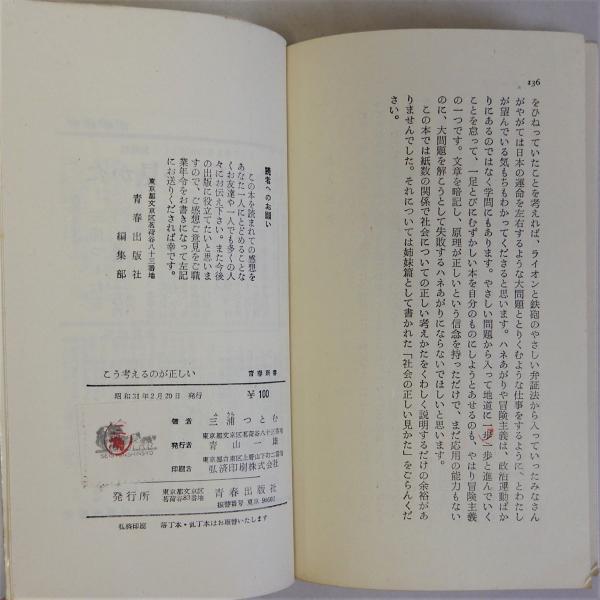 136
をひねっていたことを考えれば、ライオンと鉄砲のやさしい弁証法から入っていったみなさん
がやがては日本の運命を左右するような大問題ととりくむような仕事をするように、とわたし
が望んでいる気もちもわかってくださると思います。ハネあがりや冒険主義は、政治運動ばか
りにあるのではなく学問にもあります。やさしい問題から入って地道に一歩一歩と進んでいく
ことを怠って、一足とびにむずかしい本を自分のものにしようとあせるのも、やはり冒険主義
の一つです。文章を暗記し、原理が正しいという信念を持っただけで、まだ応用の能力もない
のに、大問題を解こうとして失敗するハネあがりにならないでほしいと思います。
この本では紙数の関係で社会についての正しい考えかたをくわしく説明するだけの余裕があ
りませんでした。それについては姉妹篇として書かれた「社会の正しい見かた」をごらんくだ
さい。
読者へのお願い
この本を読まれての感想を
あなた一人にとどめることな
くお友達や一人でも多くの人
々にお伝え下さい。また今後
の出版に役立てたいと思いま
すので、ご感想ご意見をご職
業年令をお書きになって左記
にお送りくだされば幸です。
東京都文京区茗荷谷八十三番地
青春出版社
編集部
こう考えるのが正しい 青春新書
昭和31年2月20日 発行 ¥100
著者 三浦つとむ
東京都文京区茗荷谷八十三番地
発行者 青山 雄
東京都台東区上野山下町二番地
印刷者 弘済印刷株式会社
発行所 東京都文京区茗荷谷83番地 青春出版社
振替番号 東京 98602
弘済印刷 落丁本・乱丁本はお取替いたします